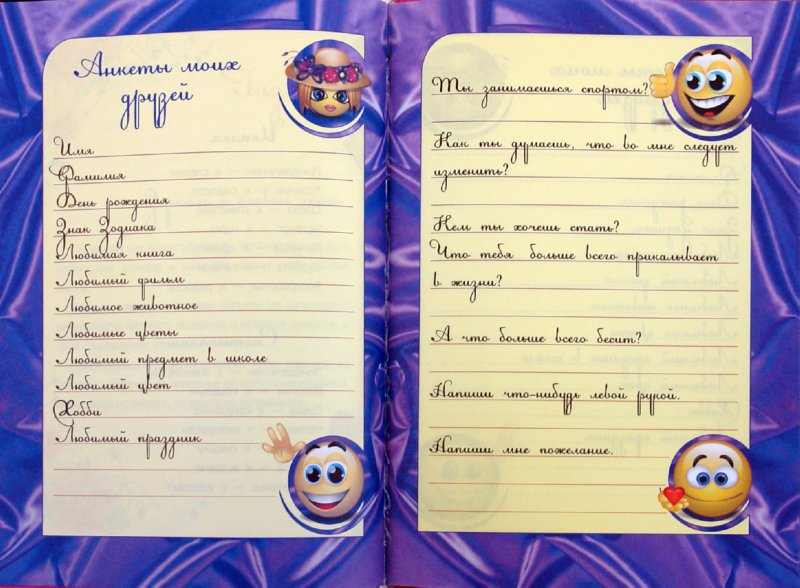 Анкеты моих
друзей
Имя
Фамилия
День рождения
Знак Зодиака
Любимая книга
Любимый фильм
Любимое животное
Любимые цветы
Любимый предмет в школе
Любимый цвет
Хобби
Любимый праздник
Ты занимаешься спортом?
Как ты думаешь, что во мне следует
изменить?
Кем ты хочешь стать?
Что тебя больше всего прикалывает
в жизни?
А что больше всего бесит?
Напиши что-нибудь левой рукой.
Напиши мне пожелание.